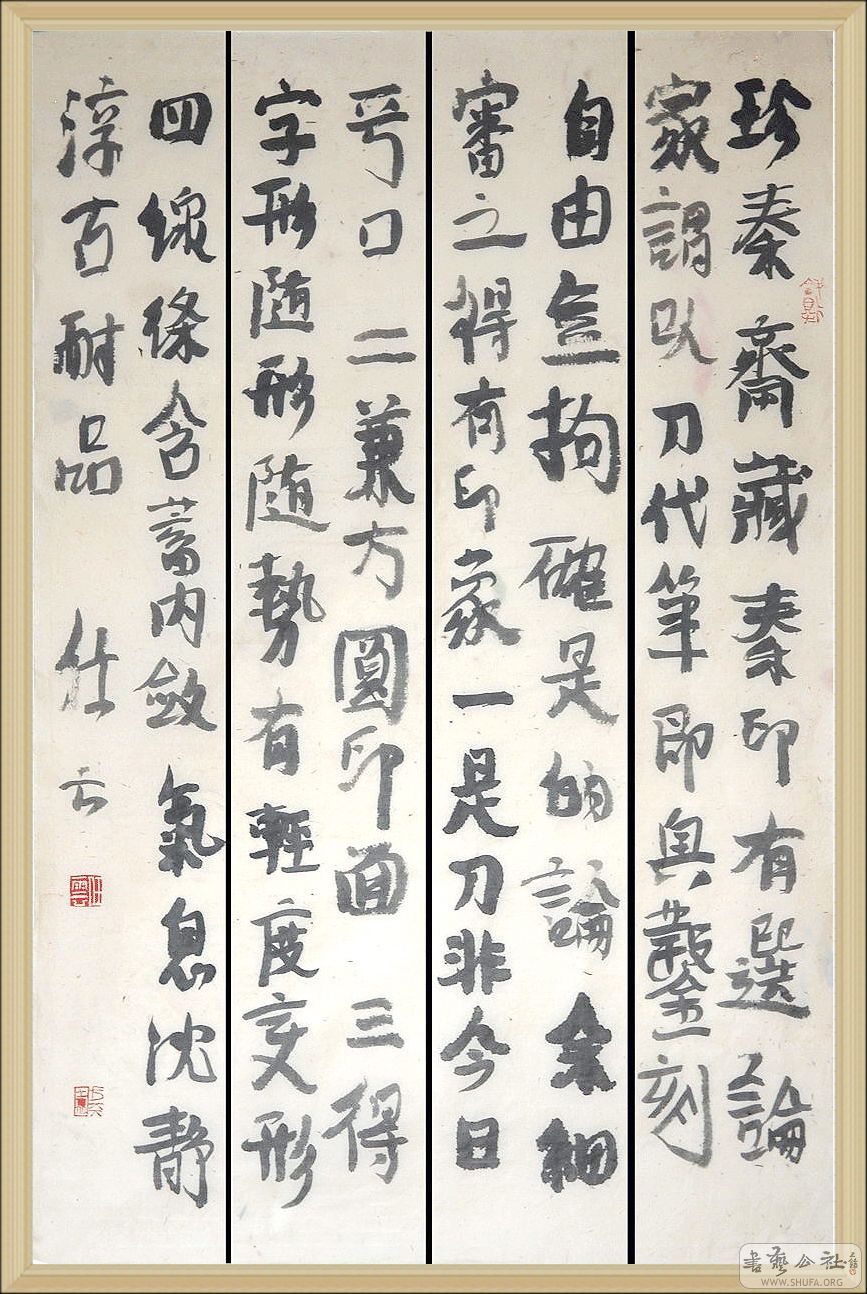 珍秦齋藏秦印有選論
家謂以刀代筆即興鑿刻
自由拘確是的論余細
審之得有印象一是刀非今日
平口 二兼方圓印面 三得
字形随形随勢有輕度变形
四線條含蓄内斂氣息沈静
淳古耐品 仕云
書藝公社
WWW.SHUFA.ORG